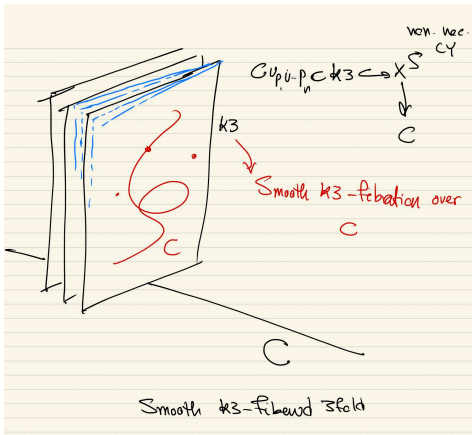 non. nec.
CY
C∪p₁∪..pₙ ⊂ K3 ↪ X⁵
↓
C
K3
Smooth K3-fibration over
C
C
C
Smooth K3-fibered 3fold